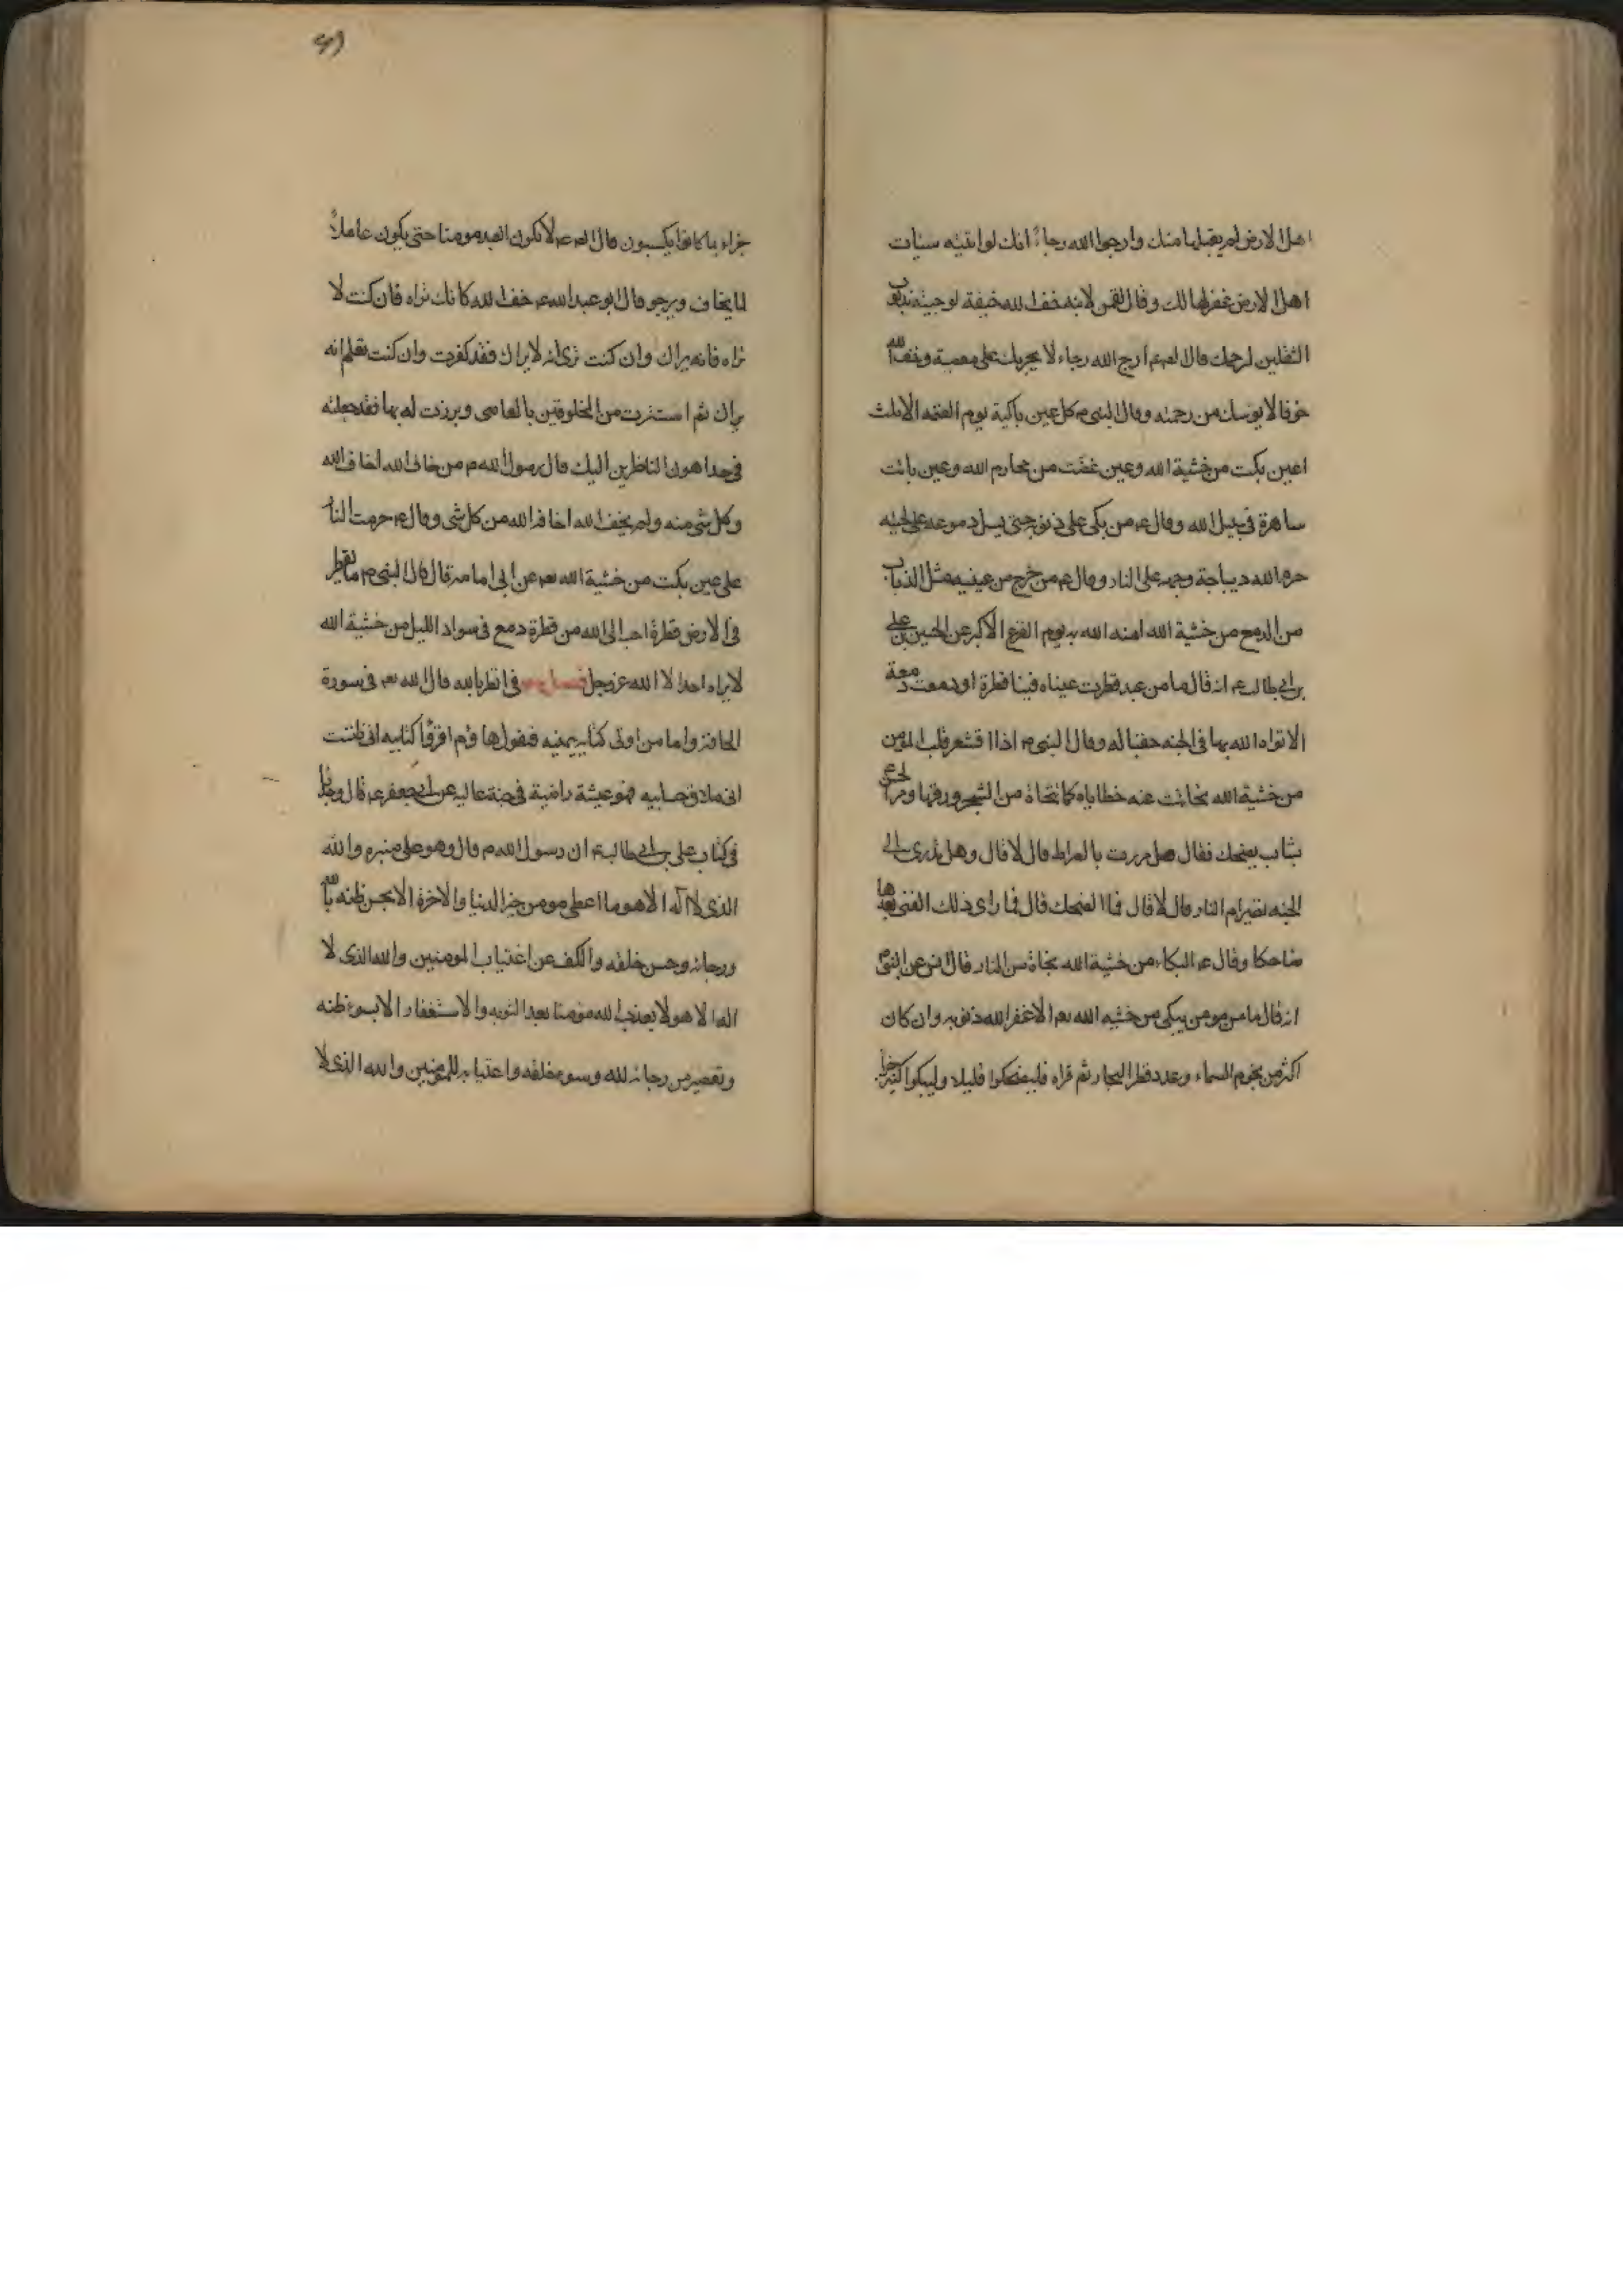 اهل الارض لم يقبلها منك وارجوا الله رجاءً انك لو اتيته سيئات
اهل الارض غفرها لك وقال لقمن لابنه خف الله خيفة لو جئته بذنوب
الثقلين لرحمك قال لقمن ارج الله رجاء لا يجريك على معصية وخف الله
خوفا لا يوسك من رحمته وقال النبي ص كل عين باكية يوم القيمة الا ثلث
اعين بكت من خشية الله وعين غضت من محارم الله وعين باتت
ساهرة في سبيل الله وقال ع من بكى على ذنوبه حتى يسيل دموعه على لحيته
حرم الله ديباجة وجهه على النار وقال ع من خرج من عينيه مثل الذباب
من الدمع من خشية الله امنه الله به يوم الفزع الاكبر عن الحسين بن علي
بن ابي طالب ع انه قال ما من عبد قطرت عيناه فينا قطرة او دمعت دمعة
الا بواه الله بها في الجنه حقبا له وقال النبي ص اذا اقشعر قلب المؤمن
من خشية الله تحاتت عنه خطاياه كما تتحاة من الشجر ورقها ومر
بشاب يضحك فقال هل مررت بالصراط قال لا قال وهل تدرى الى
الجنه تصير ام النار قال لا قال فما الضحك قال فما راى ذلك الفتى بعدها
ضاحكا وقال ع البكاء من خشية الله نجاة من النار قال انس عن النبي ص
انه قال ما من مومن يبكى من خشيه الله تع الا غفر الله ذنوبه وان كان
اكثر من نجوم السماء وعدد قطر البحار ثم قراه فليضحكوا قليلا وليبكوا كثيرا
جزاء بما كانوا يكسبون قال ع لا يكون العبد مومنا حتى يكون عاملاً
لما يخاف ويرجو قال ابو عبد الله ع خف الله كانك تراه فان كنت لا
تراه فانه يراك وان كنت ترى انه لا يراك فقد كفرت وان كنت تعلم انه
يراك ثم استترت من المخلوقين بالمعاصى وبرزت له بها فقد جعلته
في حد اهون الناظرين اليك قال رسول الله ص من خاف الله اخاف الله
وكل شي منه ولم يخف الله اخافه الله من كل شى وقال ع حرمت النار
على عين بكت من خشية الله تع عن ابى امامه قال قال النبي ص ما يقطر
في الارض قطرة احب الى الله من قطرة دمع في سواد الليل من خشية الله
لا يراه احد الا الله عز وجل فصل في الظن بالله قال الله تع في سورة
الحاقة واما من اوتى كتابه بيمينه فيقول هاؤم اقرؤا كتابيه انى ظننت
انى ملاق حسابيه فهو عيشة راضية في جنة عاليه عن ابي جعفر ع قال وجدنا
في كتاب على بن ابي طالب ع ان رسول الله ص قال وهو على منبره والله
الذى لا اله الا هو ما اعطى مومن خير الدنيا والاخرة الا بحسن ظنه بالله
ورجائه وحسن خلقه والكف عن اغتياب المومنين والله الذى لا
اله الا هو لا يعذب الله مؤمنا بعد التوبه والاستغفار الا بسوء ظنه
وتقصير من رجائه لله وسوء خلقه واغتيابه للمومنين والله الذى لا